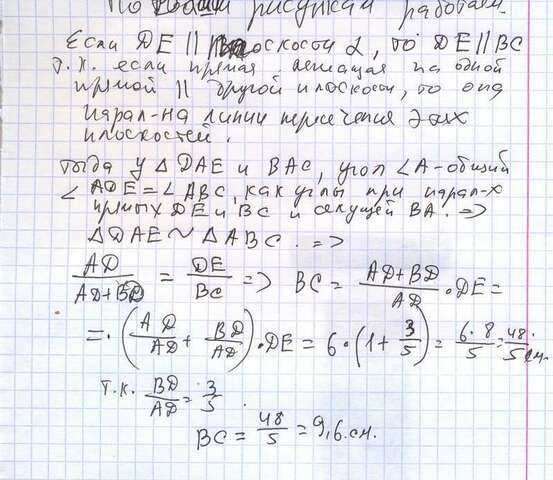 По рисунки работаем.
Если DE || плоскости α, то DE || BC
т.к. если прямая лежащая на одной
прямой || другой плоскости, то она
парал-на линии пересечения этих
плоскостей.
тогда у △ DAE и BAC, угол ∠A-общий
∠ ADE = ∠ ABC, как углы при парал-х
прямых DE и BC и секущей BA. =>
△DAE ~ △ABC. =>
AD/(AD+BD) = DE/BC => BC = (AD+BD)/AD · DE =
= · (AD/AD + BD/AD) · DE = 6 · (1 + 3/5) = 6·8/5 = 48/5 см.
т.к. BD/AD = 3/5
BC = 48/5 = 9,6 см.